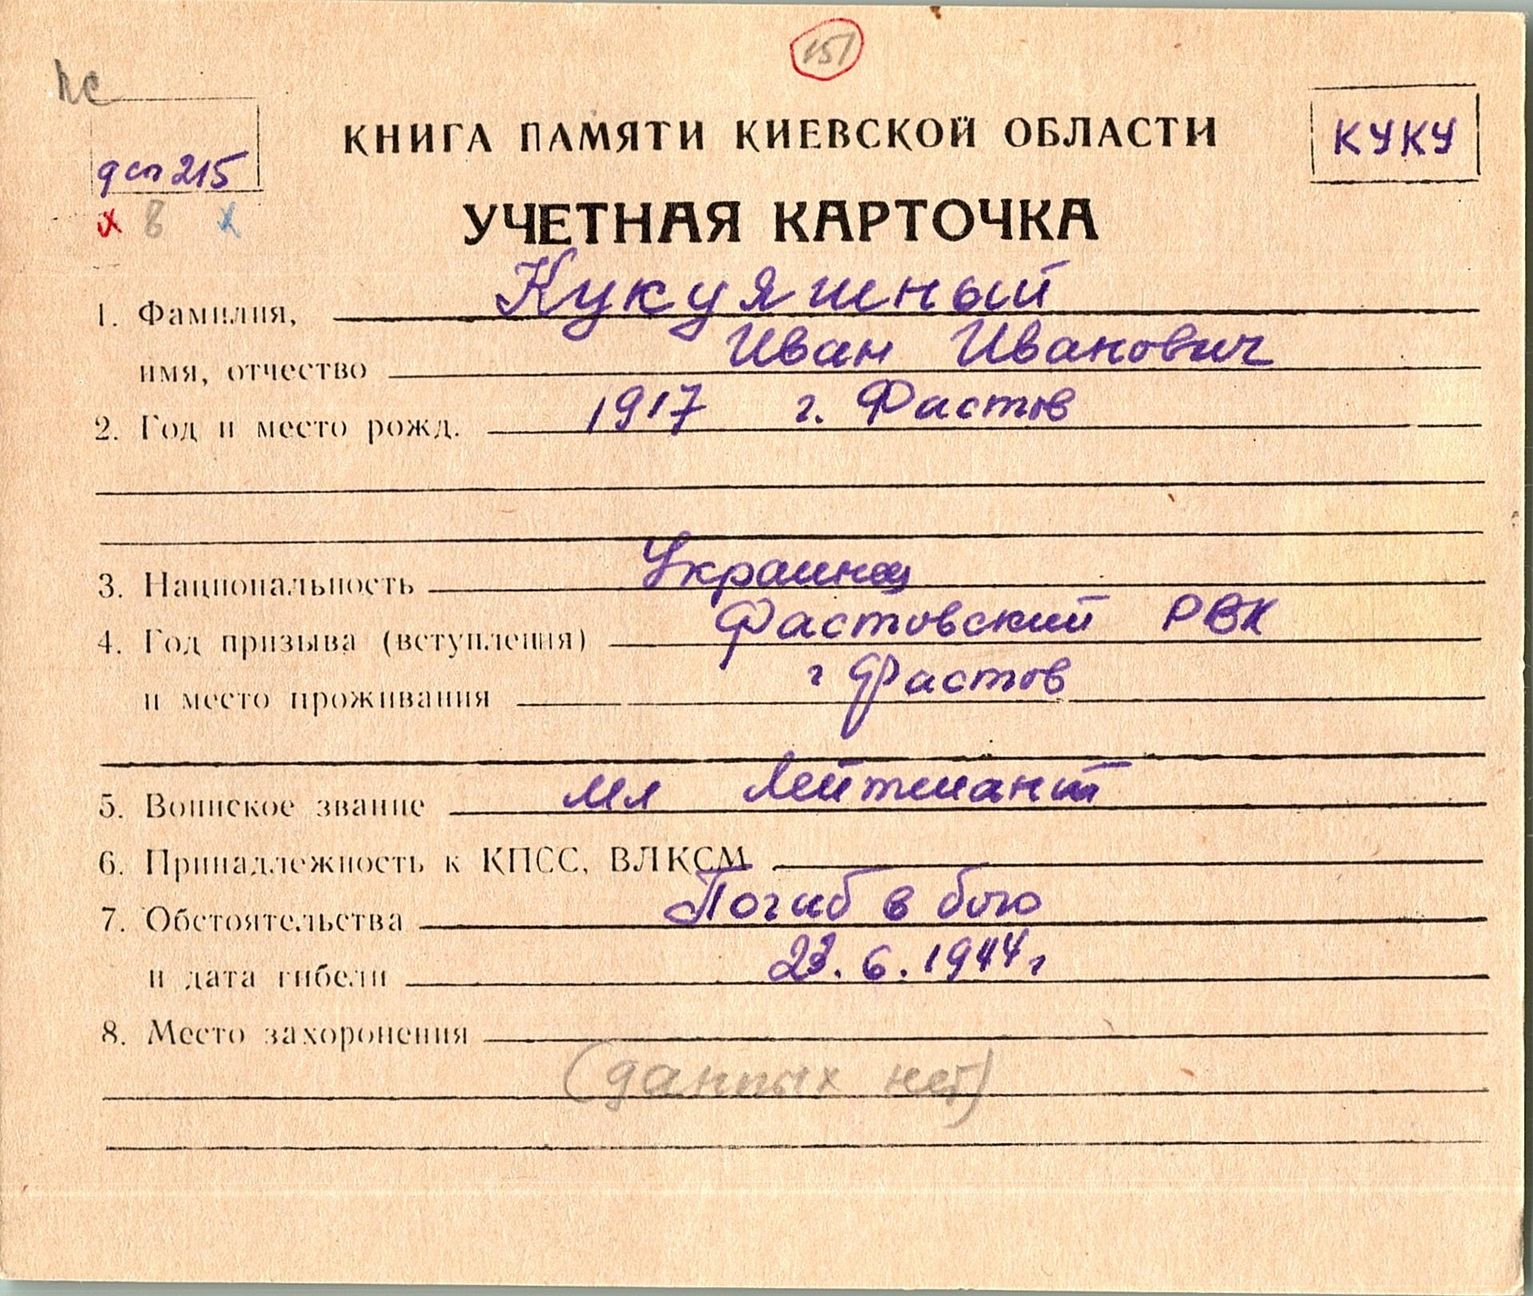 151
КНИГА ПАМЯТИ КИЕВСКОЙ ОБЛАСТИ
КУКУ
215
УЧЕТНАЯ КАРТОЧКА
1. Фамилия, Кукуяшный
имя, отчество Иван Иванович
2. Год и место рожд. 1917 г. Фастов
3. Национальность Украинец
4. Год призыва (вступления) Фастовский РВК
и место проживания г Фастов
5. Воинское звание мл Лейтенант
6. Принадлежность к КПСС, ВЛКСМ
7. Обстоятельства Погиб в бою
и дата гибели 23.6.1944г
8. Место захоронения
(данных нет)